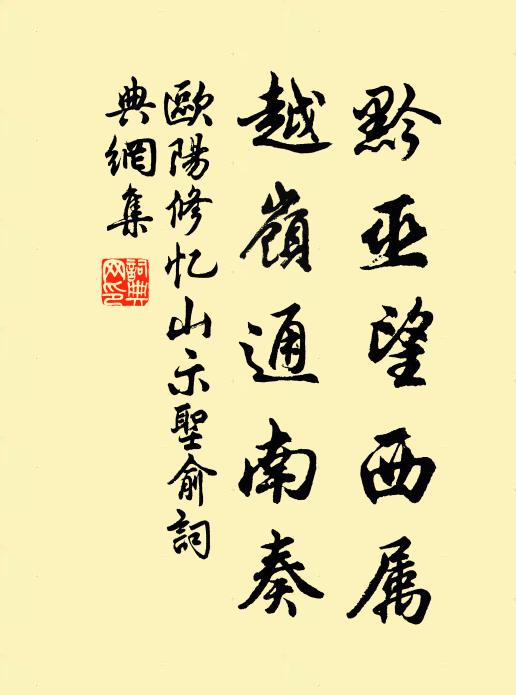 黔巫望西属
越嶺通南奏
歐陽修忆山示聖俞詞
典網集
詞典网印